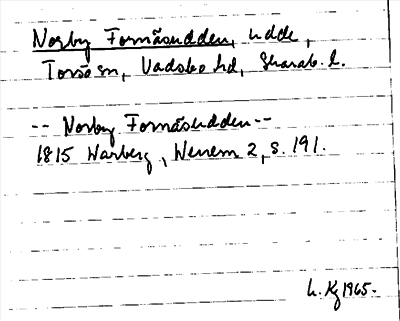 Norby Fornäsudden, udde,
Torsö sn, Vadsbo hd, Skarab. l.
-- Norby Fornäsudden --
1815 Warberg, Wenern 2, s. 191.
L. Kg 1965.